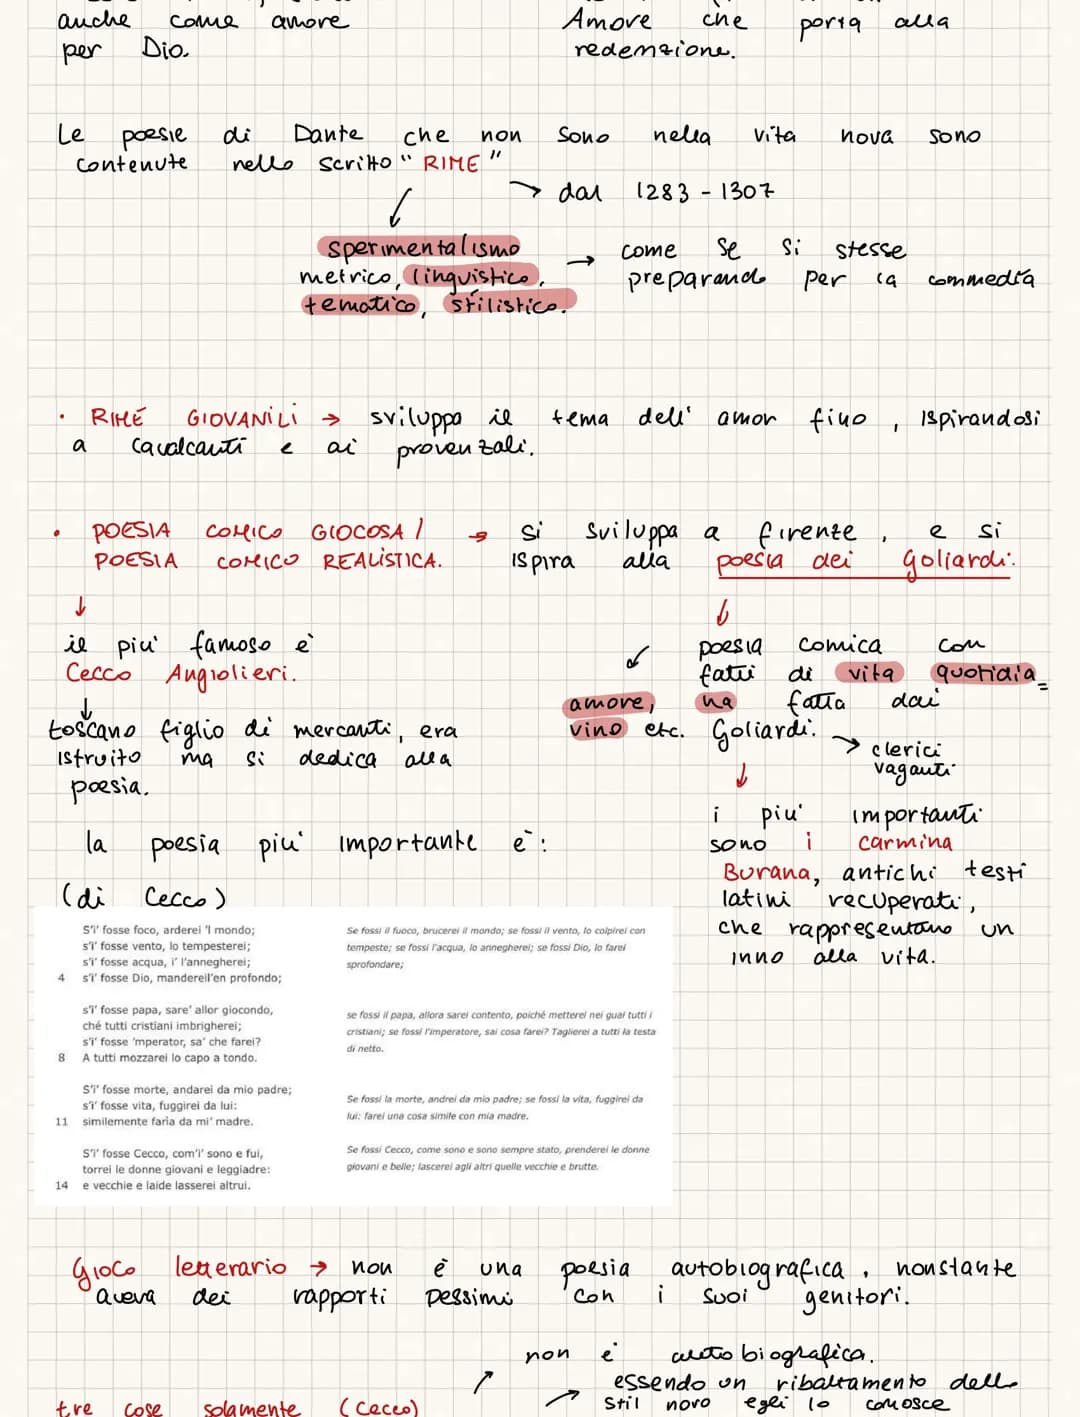 anche come amore
per Dio.
Amore che porta alla
redenzione.
Le poesie di Dante che non sono nella vita nova sono
contenute nello scritto "RIME"
→ dal 1283 - 1307
sperimentalismo
metrico, linguistico,
tematico, stilistico.
→ come se si stesse
preparando per la commedia
• RIME GIOVANILI → sviluppa il tema dell' amor fino, ispirandosi
a Cavalcanti e ai provenzali.
• POESIA COMICO GIOCOSA / → si sviluppa a firenze, e si
POESIA COMICO REALISTICA. ispira alla poesia dei goliardi.
↓
il piu' famoso è
Cecco Angiolieri.
↓
toscano figlio di mercanti, era
istruito ma si dedica alla
poesia.
poesia comica con
fatti di vita quotidia=
na fatta dai
Goliardi. → clerici
vaganti
amore,
vino etc.
↓
i piu' importanti
sono i carmina
Burana, antichi testi
latini recuperati,
che rappresentano un
inno alla vita.
la poesia piu' importante è:
(di Cecco)
S'i' fosse foco, arderei 'l mondo;
s'i' fosse vento, lo tempesterei;
s'i' fosse acqua, i' l'annegherei;
4 s'i' fosse Dio, mandereil'en profondo;
s'i' fosse papa, sare' allor giocondo,
ché tutti cristiani imbrigherei;
s'i' fosse 'mperator, sa' che farei?
8 A tutti mozzarei lo capo a tondo.
S'i' fosse morte, andarei da mio padre;
s'i' fosse vita, fuggirei da lui:
11 similemente farìa da mi' madre.
S'i' fosse Cecco, com'i' sono e fui,
torrei le donne giovani e leggiadre:
14 e vecchie e laide lasserei altrui.
Se fossi il fuoco, brucerei il mondo; se fossi il vento, lo colpirei con
tempeste; se fossi l'acqua, lo annegherei; se fossi Dio, lo farei
sprofondare;
se fossi il papa, allora sarei contento, poiché metterei nei guai tutti i
cristiani; se fossi l'imperatore, sai cosa farei? Taglierei a tutti la testa
di netto.
Se fossi la morte, andrei da mio padre; se fossi la vita, fuggirei da
lui: farei una cosa simile con mia madre.
Se fossi Cecco, come sono e sono sempre stato, prenderei le donne
giovani e belle; lascerei agli altri quelle vecchie e brutte.
Gioco letterario → non è una poesia autobiografica, nonstante
aveva dei rapporti pessimi con i suoi genitori.
non è autobiografica.
essendo un ribaltamento dello
stil novo egli lo conosce
tre cose solamente (Cecco)